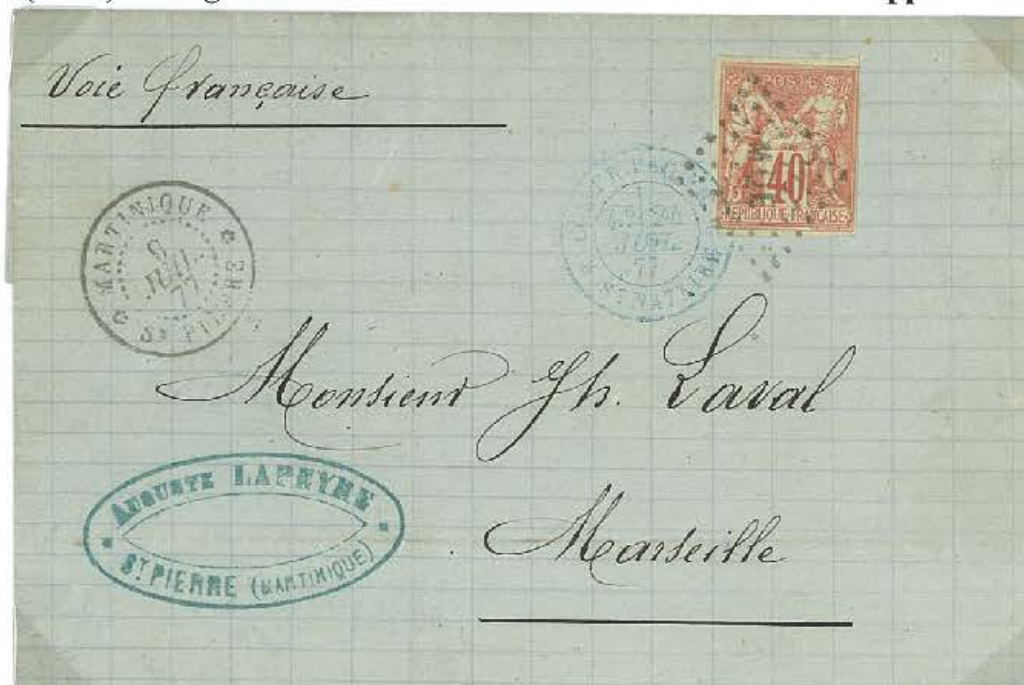 Voie française
POSTE
40
REPUBLIQUE FRANÇAISE
MARTINIQUE
9
JUIL.
77
ST PIERRE
77
ST NAZAIRE
Monsieur Jh. Laval
Marseille
AUGUSTE LAPEYRE
ST PIERRE (MARTINIQUE)